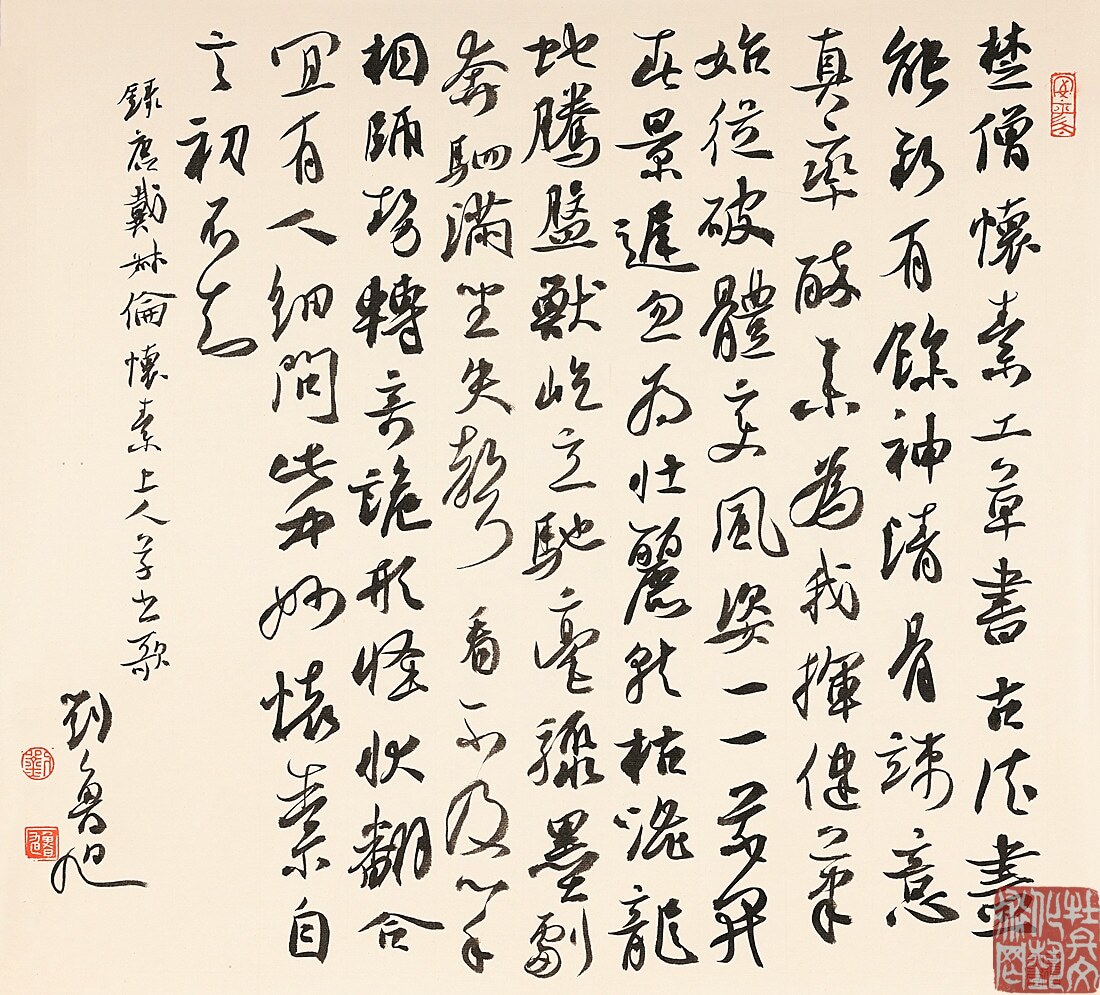 楚僧懷素工草書古法盡
能新有餘神清骨竦意
真率醉来為我揮健筆
始從破體變風姿一一花開
春景遲忽為壯麗就枯澀龍
虵騰盤獸屹立馳毫驟墨劇
奔駟滿坐失聲看不及心手
相師勢轉奇詭形怪狀翻合
宜有人細問此中妙懷素自
言初不知
錄唐戴叔倫懷素上人草書歌
劉魯旭
劉
魯旭